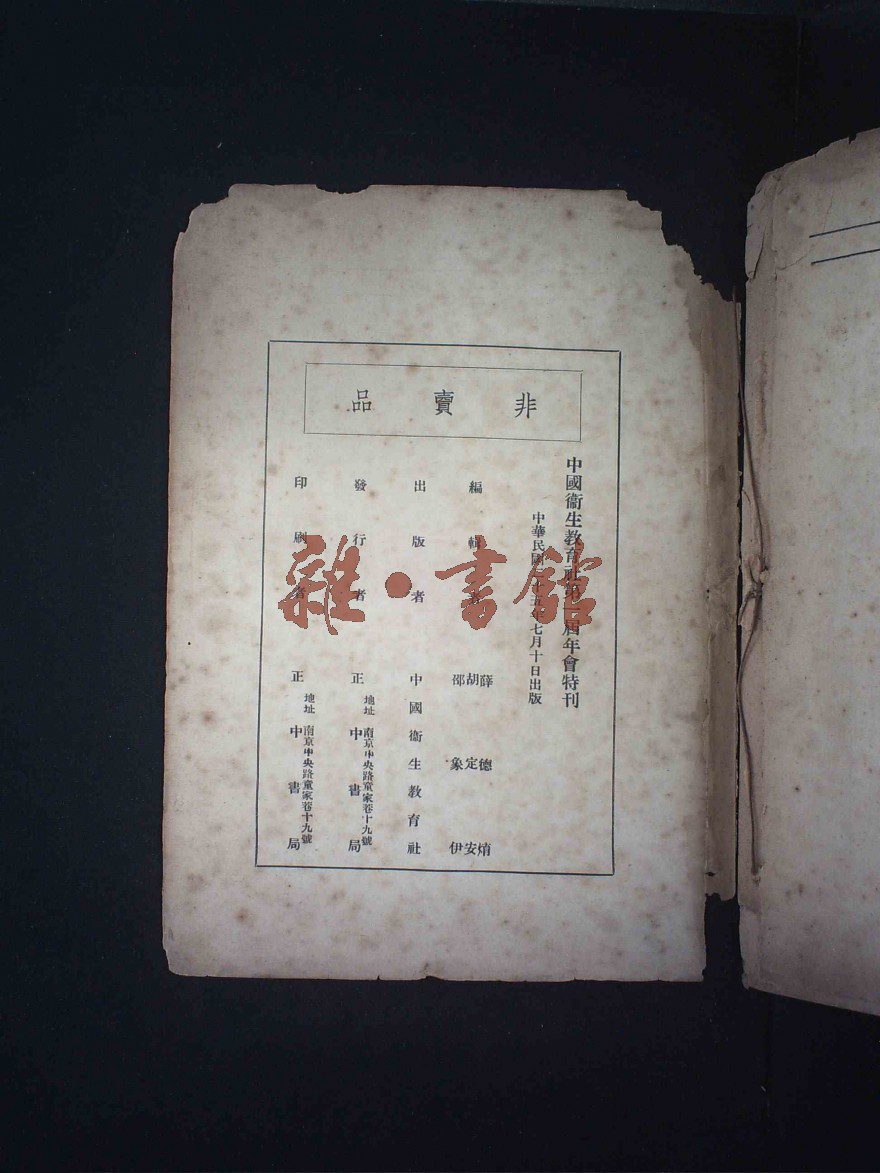 非賣品
中國衞生教育社第一屆年會特刊
中華民國二十五年七月十日出版
編輯者 薛德焴 胡定安 邵象伊
出版者 中國衞生教育社
發行者 正中書局
地址 南京中央路童家巷十九號
印刷者 正中書局
地址 南京中央路童家巷十九號
雜·書館